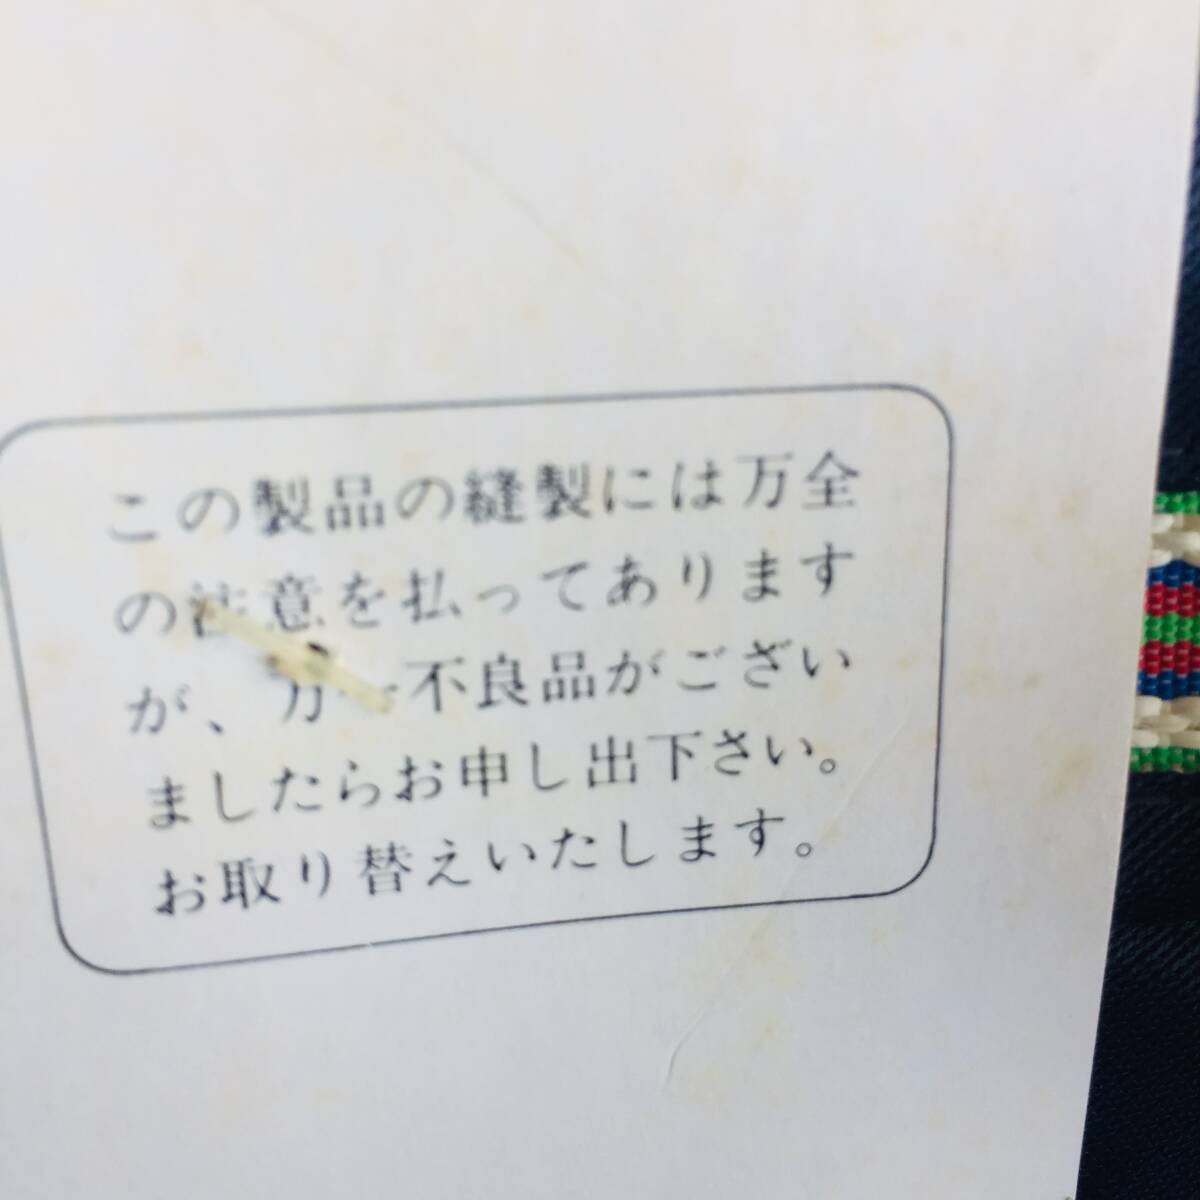 この製品の縫製には万全
の注意を払ってあります
が、万一不良品がござい
ましたらお申し出下さい。
お取り替えいたします。